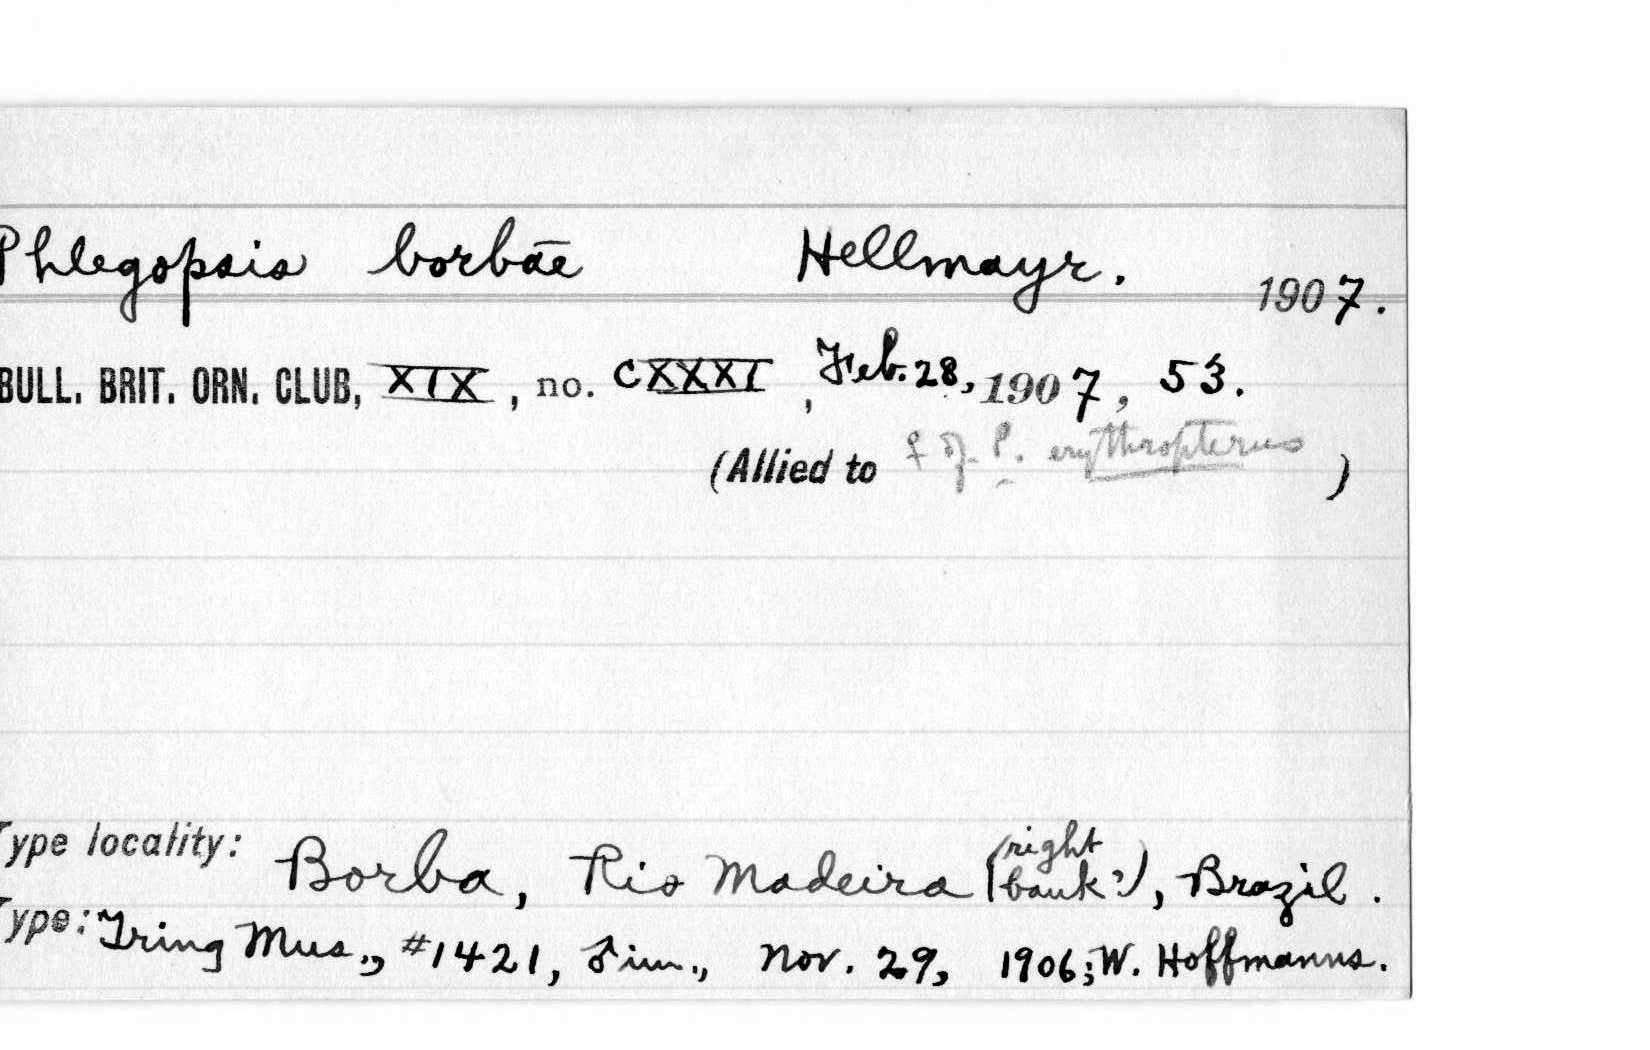 Phlegopsis borbae Hellmayr. 1907.
BULL. BRIT. ORN. CLUB, XIX, no. CXXXI, Feb. 28, 1907, 53.
(Allied to ♀ of P. erythropterus)
Type locality: Borba, Rio Madeira (right bank?), Brazil.
Type: Tring Mus., #1421, ♂ im., Nov. 29, 1906; W. Hoffmanns.